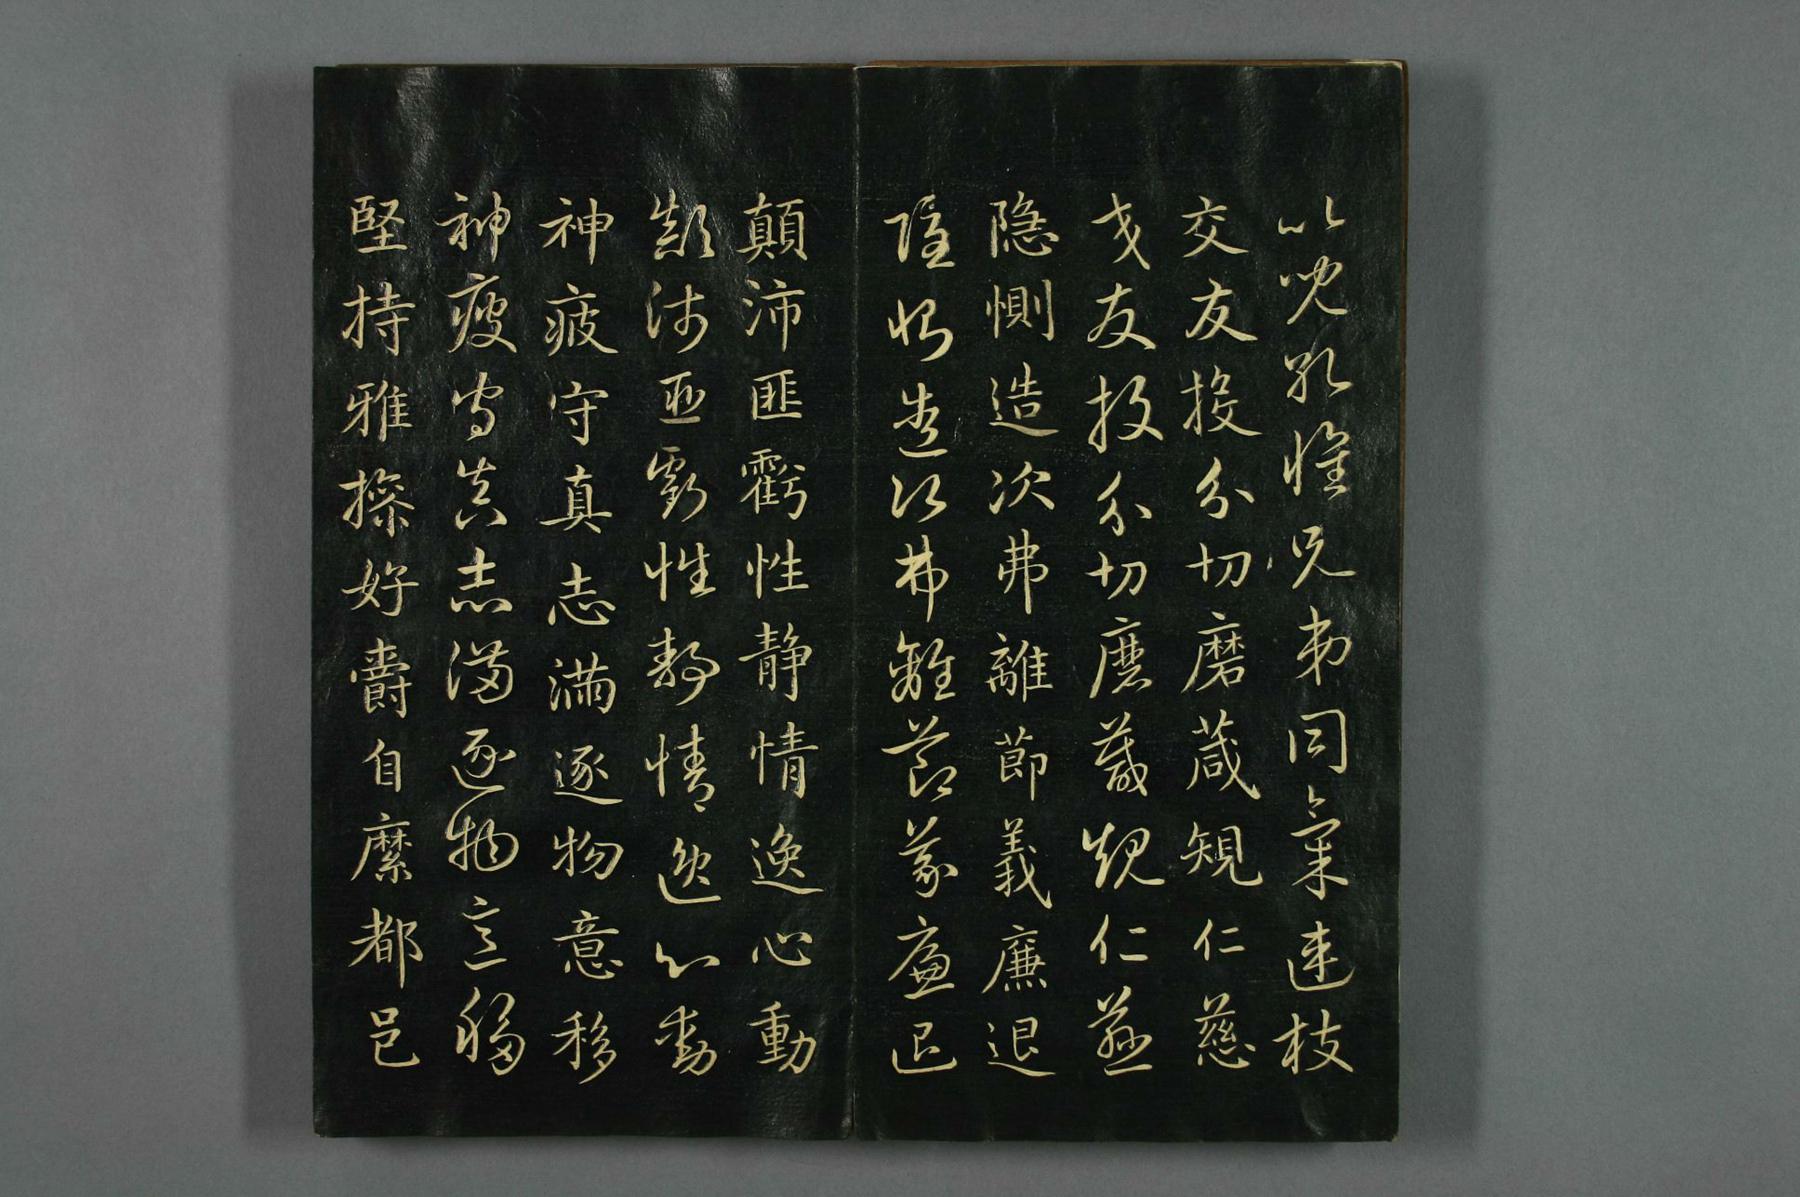 比兒孔懷兄弟同氣連枝
交友投分切磨箴規仁慈
交友投分切磨箴規仁慈
隱惻造次弗離節義廉退
隱惻造次弗離節義廉退
顛沛匪虧性靜情逸心動
顛沛匪虧性靜情逸心動
神疲守真志滿逐物意移
神疲守真志滿逐物意移
堅持雅操好爵自縻都邑